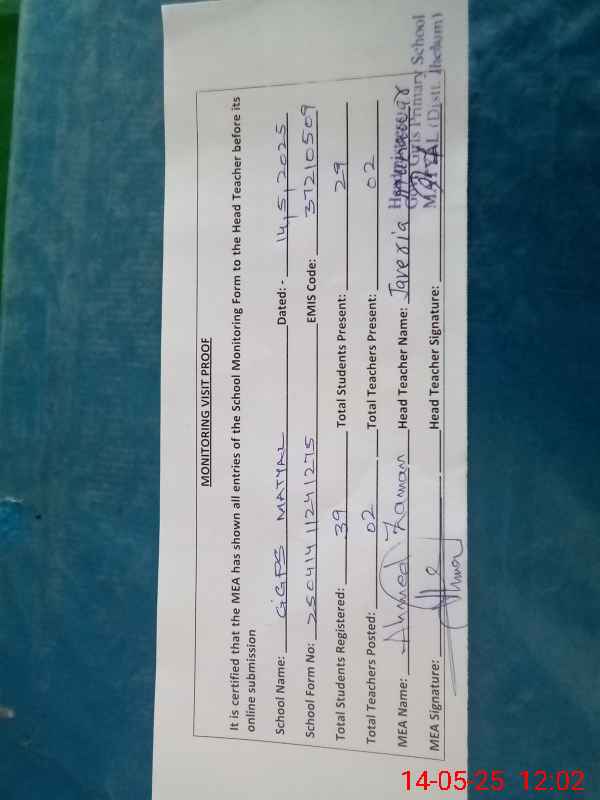 MONITORING VISIT PROOF
It is certified that the MEA has shown all entries of the School Monitoring Form to the Head Teacher before its
online submission
School Name: GGPS MATYAL Dated: - 14/5/2025
School Form No: 25041411241275 EMIS Code: 37210509
Total Students Registered: 39 Total Students Present: 29
Total Teachers Posted: 02 Total Teachers Present: 02
MEA Name: Ahmed Zaman Head Teacher Name: Javeria
MEA Signature: Head Teacher Signature:
Headmistress
Girls Primary School
(Distt. Jhelum)
14-05-25 12:02